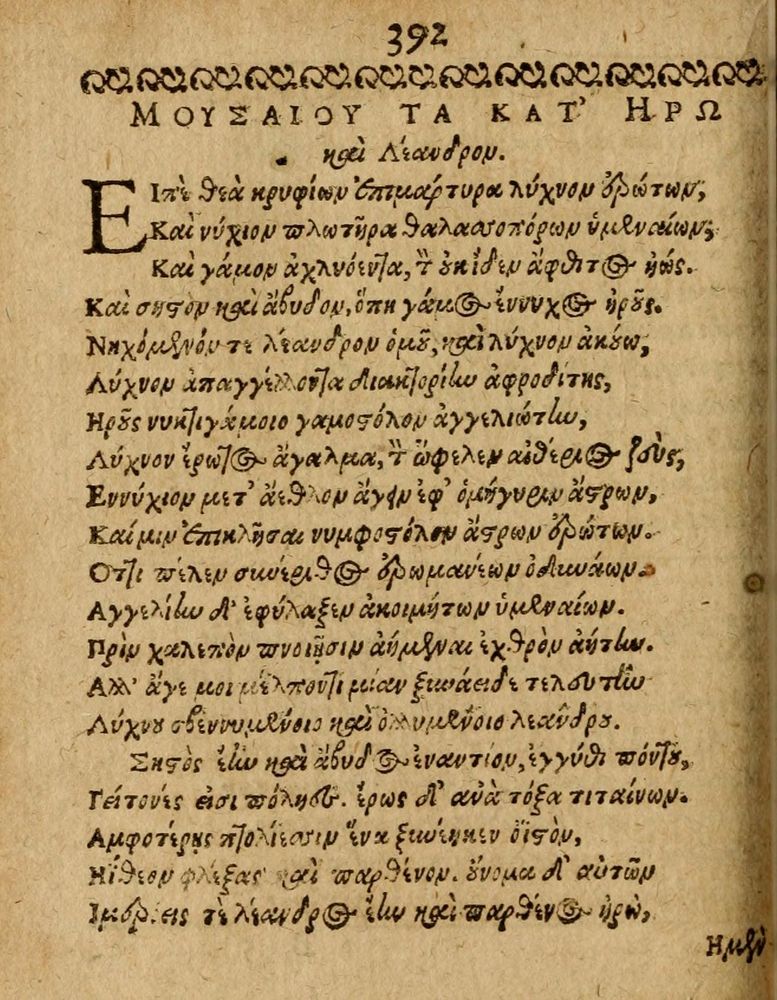 392
ΜΟΥΣΑΙΟΥ ΤΑ ΚΑΤ' ΗΡΩ
καὶ Λέανδρον.
ΕΙπὲ θεὰ κρυφίων ἐπιμάρτυρα λύχνον ἐρώτων,
Καὶ νύχιον πλωτῆρα θαλασσοπόρων ὑμεναίων,
Καὶ γάμον ἀχλυόεντα, τ̀ οὐκ ἴδεν ἄφθιτος ἠώς.
Καὶ σηστὸν καὶ ἄβυδον, ὅπη γάμος ἔννυχος ἡροῦς.
Νηχόμενόν τε λέανδρον ὁμοῦ, καὶ λύχνον ἀκούω,
Λύχνον ἀπαγγέλλοντα διακτορίην ἀφροδίτης,
Ηροῦς νυκτιγάμοιο γαμοστόλον ἀγγελιώτην,
Λύχνον ἔρωτος ἄγαλμα, τ̀ ὤφελεν αἰθέριος ζεὺς,
Εννύχιον μετ' ἄεθλον ἄγειν ἐφ' ὁμήγυριν ἄστρων,
Καί μιν ἐπικλῆσαι νυμφοστόλον ἄστρον ἐρώτων.
Οττι πέλεν συνέριθος ἐρωμανέων ὀδυνάων.
Αγγελίην δ' ἐφύλαξεν ἀκοιμήτων ὑμεναίων.
Πρὶν χαλεπὸν πνοιῇσιν ἀήμεναι ἐχθρὸν ἀήτην.
Αλλ' ἄγε μοι μέλποντι μίαν ξυνάειδε τελευτὴν
Λύχνου σβεννυμένοιο καὶ ὀλλυμένοιο λεάνδρου.
Σηστὸς ἔην καὶ ἄβυδος ἐναντίον, ἐγγύθι πόντου,
Γείτονές εἰσι πόληες. ἔρως δ' ἀνὰ τόξα τιταίνων.
Αμφοτέρῃς πτολίεσσιν ἕνα ξυνέηκεν ὀϊστὸν,
Ηΐθεον φλέξας καὶ παρθένον. οὔνομα δ' αὐτῶν
Ιμερόεις τὲ λέανδρος ἔην καὶ παρθένος ἡρὼ,
Ημὲν